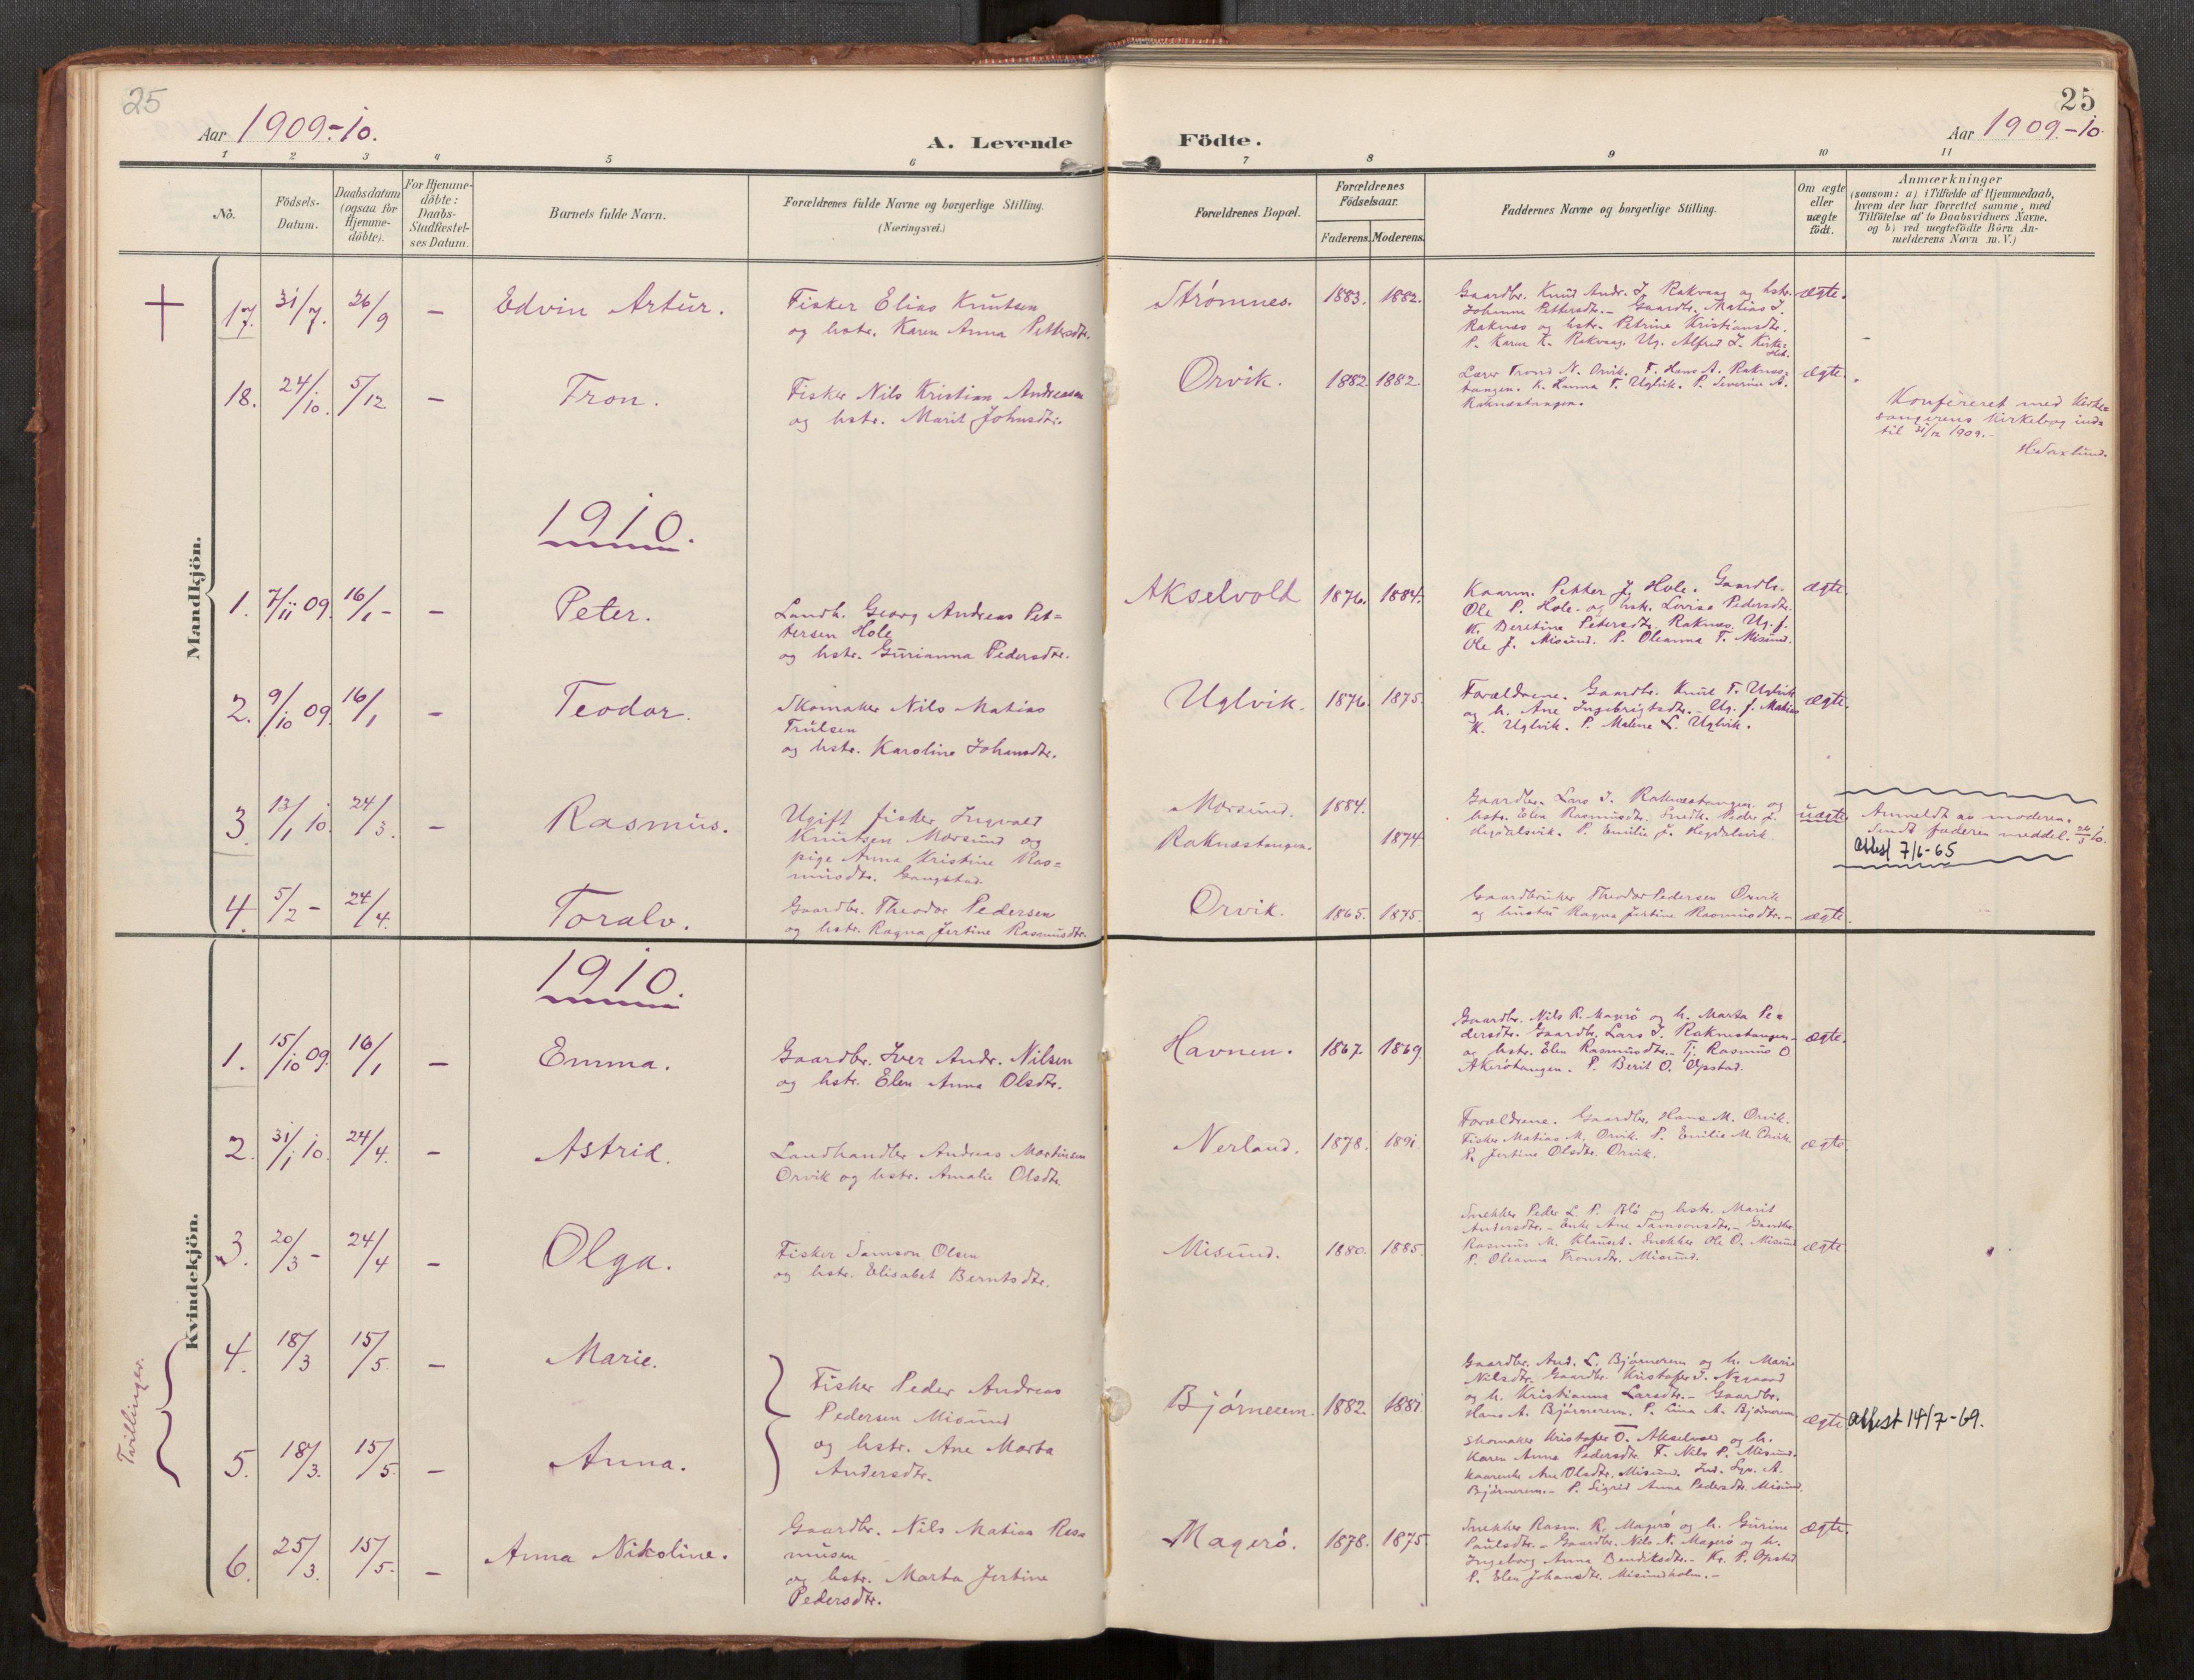 25
25
Aar 1909-10.
A. Levende
Födte.
Aar 1909-10.
1 2 3 4 5 6 7 8 9 10 11
No.
Födsels-
Datum.
Daabsdatum
(ogsaa for
Hjemme-
döbte).
For Hjemme-
döbte:
Daabs-
Stadfæstel-
ses Datum.
Barnets fulde Navn.
Forældrenes fulde Navne og borgerlige Stilling.
(Næringsvei.)
Forældrenes Bopæl.
Forældrenes
Födselsaar.
Faderens. Moderens.
Faddernes Navne og borgerlige Stilling.
Om ægte
eller
uægte
födt.
Anmærkninger
(saasom: a) i Tilfælde af Hjemmedaab,
hvem der har forrettet samme, med
Tilföielse af to Daabsvidners Navne,
og b) ved uægtefödte Börn An-
melderens Navn m. V.)
Mandkjön.
17. 31/7. 26/9 - Edvin Artur.
Fisker Elias Knutsen
og hstr. Karen Anna Pettersdtr.
Strømnes. 1883. 1882.
Gaardbr. Knud Andr. J. Rakvaag og hstr.
Johanne Pettersdtr. - Gaardbr. Matias J.
Raknes og hstr. Petrine Kristiansdtr.
P. Karen K. Rakvaag. Ug. Alfred J.
ægte.
18. 24/10. 5/12 - Tron.
Fisker Nils Kristian Andreassen
og hstr. Marit Johnsdtr.
Orvik. 1882 1882
Lærer Trond N. Orvik. F. Hans A. Raknes-
tangen. K. Hanna T. Uglvik. P. Severine A.
Raknestangen.
ægte.
Konfereret med Kirke=
sangerens kirkebog ind=
til 31/12 1909.-
H. Saxlund.
1910.
1. 7/11 09. 16/1 - - Peter.
Landh. Georg Andreas Pet=
tersen Hole
og hstr. Gurianna Pedersdtr.
Akselvold 1876. 1884.
Kaarm. Petter J. Hole. Gaardbr.
Ole P. Hole og hstr. Lovise Pedersdtr.
K. Beretine Petersdtr. Raknes. Ug. f.
Ole J. Misund. P. Oleanna T. Misund.
ægte.
2. 9/10 09. 16/1 - Teodor.
Skomaker Nils Matias
Trulsen
og hstr. Karoline Johansdtr.
Uglvik. 1876. 1875.
Forældrene. Gaardbr. Knut T. Uglvik
og h. Ane Ingebrigtsdtr. - Ug. f. Matias
K. Uglvik. P. Malene L. Uglvik.
ægte.
3. 13/1 10. 24/3. - Rasmus.
Ugift fisker Ingvald
Knutsen Morsund og
pige Anna Kristine Ras=
musdtr. Gangstad.
Morsund. 1884.
Raknestangen. 1874.
Gaardbr. Lars J. Raknestangen og
hstr. Elen Rasmusdtr. Snedk. Peder J.
Hegdalsvik. P. Emilie J. Hegdalsvik.
uægte.
Anmeldt av moderen.
Sendt faderen meddel. 26/5 10.
attest 7/6-65
4. 5/2 - 24/4. Toralv.
Gaardbr. Theodor Pedersen
og hstr. Ragna Jertine Rasmusdtr.
Orvik. 1865. 1875.
Gaardbruker Theodor Pedersen Orvik
og hustru Ragna Jertine Rasmusdtr. -
ægte.
Kvindekjön.
1910.
1. 15/10 09. 16/1 - Emma.
Gaardbr. Iver Andr. Nilsen
og hstr. Elen Anna Olsdtr.
Havnen. 1867. 1869
Gaardbr. Nils R. Magerö og h. Marta Pe=
dersdtr. Gaardbr. Lars J. Raknestangen
og hstr. Elen Rasmusdtr. - Tj. Rasmus O
Akerötangen. P. Berit O. Opstad.
ægte.
2. 31/1 10. 24/4. - Astrid.
Landhandler Andreas Martinsen
Orvik og hstr. Amalie Olsdtr.
Nerland. 1878. 1891.
Forældrene. Gaardbr. Hans M. Orvik.
Fisker Matias M. Orvik. P. Emilie M. Orvik.
P. Jertine Olsdtr. Orvik.
ægte.
3. 20/3 - 24/4 - Olga.
Fisker Samson Olsen
og hstr. Elisabet Berntsdtr.
Misund. 1880. 1885.
Snekker Peder L. P. Blö og hstr. Marit
Andersdtr. - Enke Ane Samsonsdtr. - Gaardbr.
Rasmus M. Klauset. Snekker Ole O. Misund
P. Oleanna Tronsdtr. Misund.
ægte.
Tvillinger.
4. 18/3 15/5. - Marie.
5. 18/3. 15/5. - Anna.
Fisker Peder Andreas
Pedersen Misund
og hstr. Ane Marta
Andersdtr.
Bjørnerem. 1882. 1881.
Gaardbr. And. L. Bjørnerem og h. Marie
Nilsdtr. Gaardbr. Kristofer J. Nygaard
og h. Kristianna Larsdtr. - Gaardbr.
Hans A. Bjørnerem. P. Lina A. Bjørnerem
Skomaker Kristofer O. Akselvold og h.
Karen Anna Pedersdtr. F. Nils P. Misund.
Kaarenke Ane Olsdtr. Misund.
Bjørnerem. - P. Sigrid Anna Pedersdtr. Misund.
ægte
attest 14/7-69.
6. 25/3. 15/5. - Anna Nikoline.
Gaardbr. Nils Matias Ras=
musen
og hstr. Marta Jertine
Pedersdtr.
Magerö. 1878. 1875.
Snekker Rasm. R. Magerö og h. Gurine
Paulsdtr. - Gaardbr. Nils N. Magerö og h.
Ingeborg Anna Bendiksdtr. - Kr. P. Opstad
P. Elen Johansdtr. Misundholm. -
ægte.